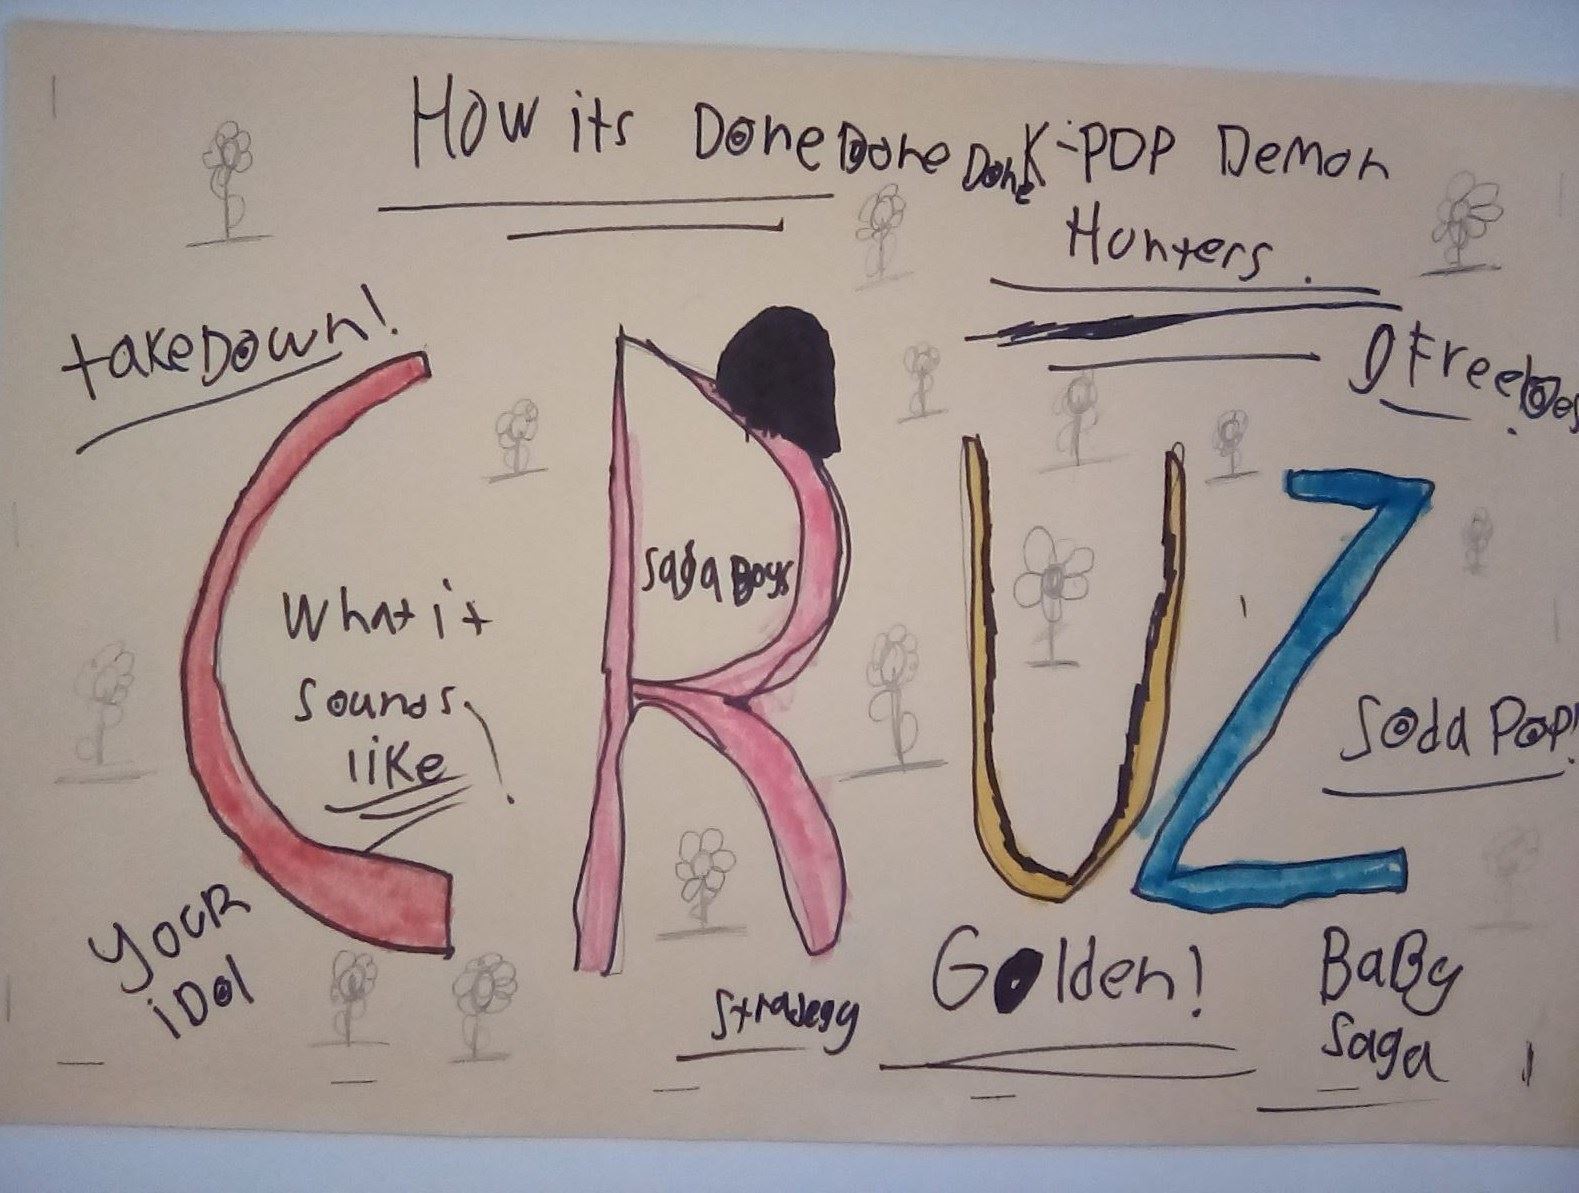 How its Done Done Done K-POP Demon
Hunters.
takeDown!
Free
CRUZ
Saga Boys
What it
sounds
like
Soda Pop!
YouR
iDol
Stradegy
Golden!
BaBy
Saga